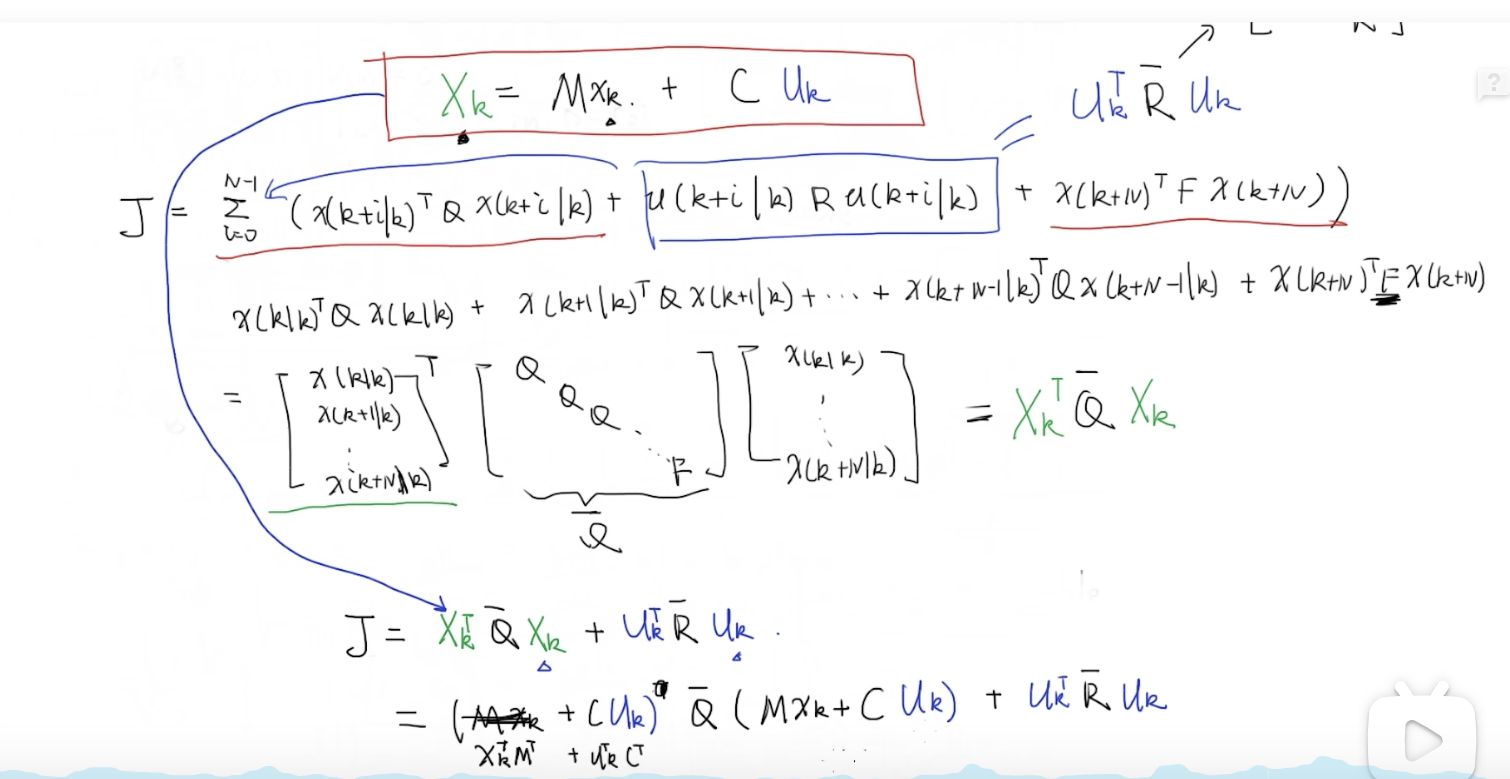 X_k = M x_k. + C U_k
U_k^T R̄ U_k
J = Σ_{i=0}^{N-1} (x(k+i|k)^T Q x(k+i|k) + u(k+i|k) R u(k+i|k) + x(k+N)^T F x(k+N))
x(k|k)^T Q x(k|k) + x(k+1|k)^T Q x(k+1|k) + ... + x(k+N-1|k)^T Q x(k+N-1|k) + x(k+N)^T F x(k+N)
= [x(k|k) x(k+1|k) ⋮ x(k+N|k)]^T [Q Q Q ⋱ F] [x(k|k) ⋮ x(k+N|k)] = X_k^T Q̄ X_k
Q̄
J = X_k^T Q̄ X_k + U_k^T R̄ U_k.
= ( + C U_k) Q̄ (M x_k + C U_k) + U_k^T R̄ U_k
x_k^T M^T + U_k^T C^T